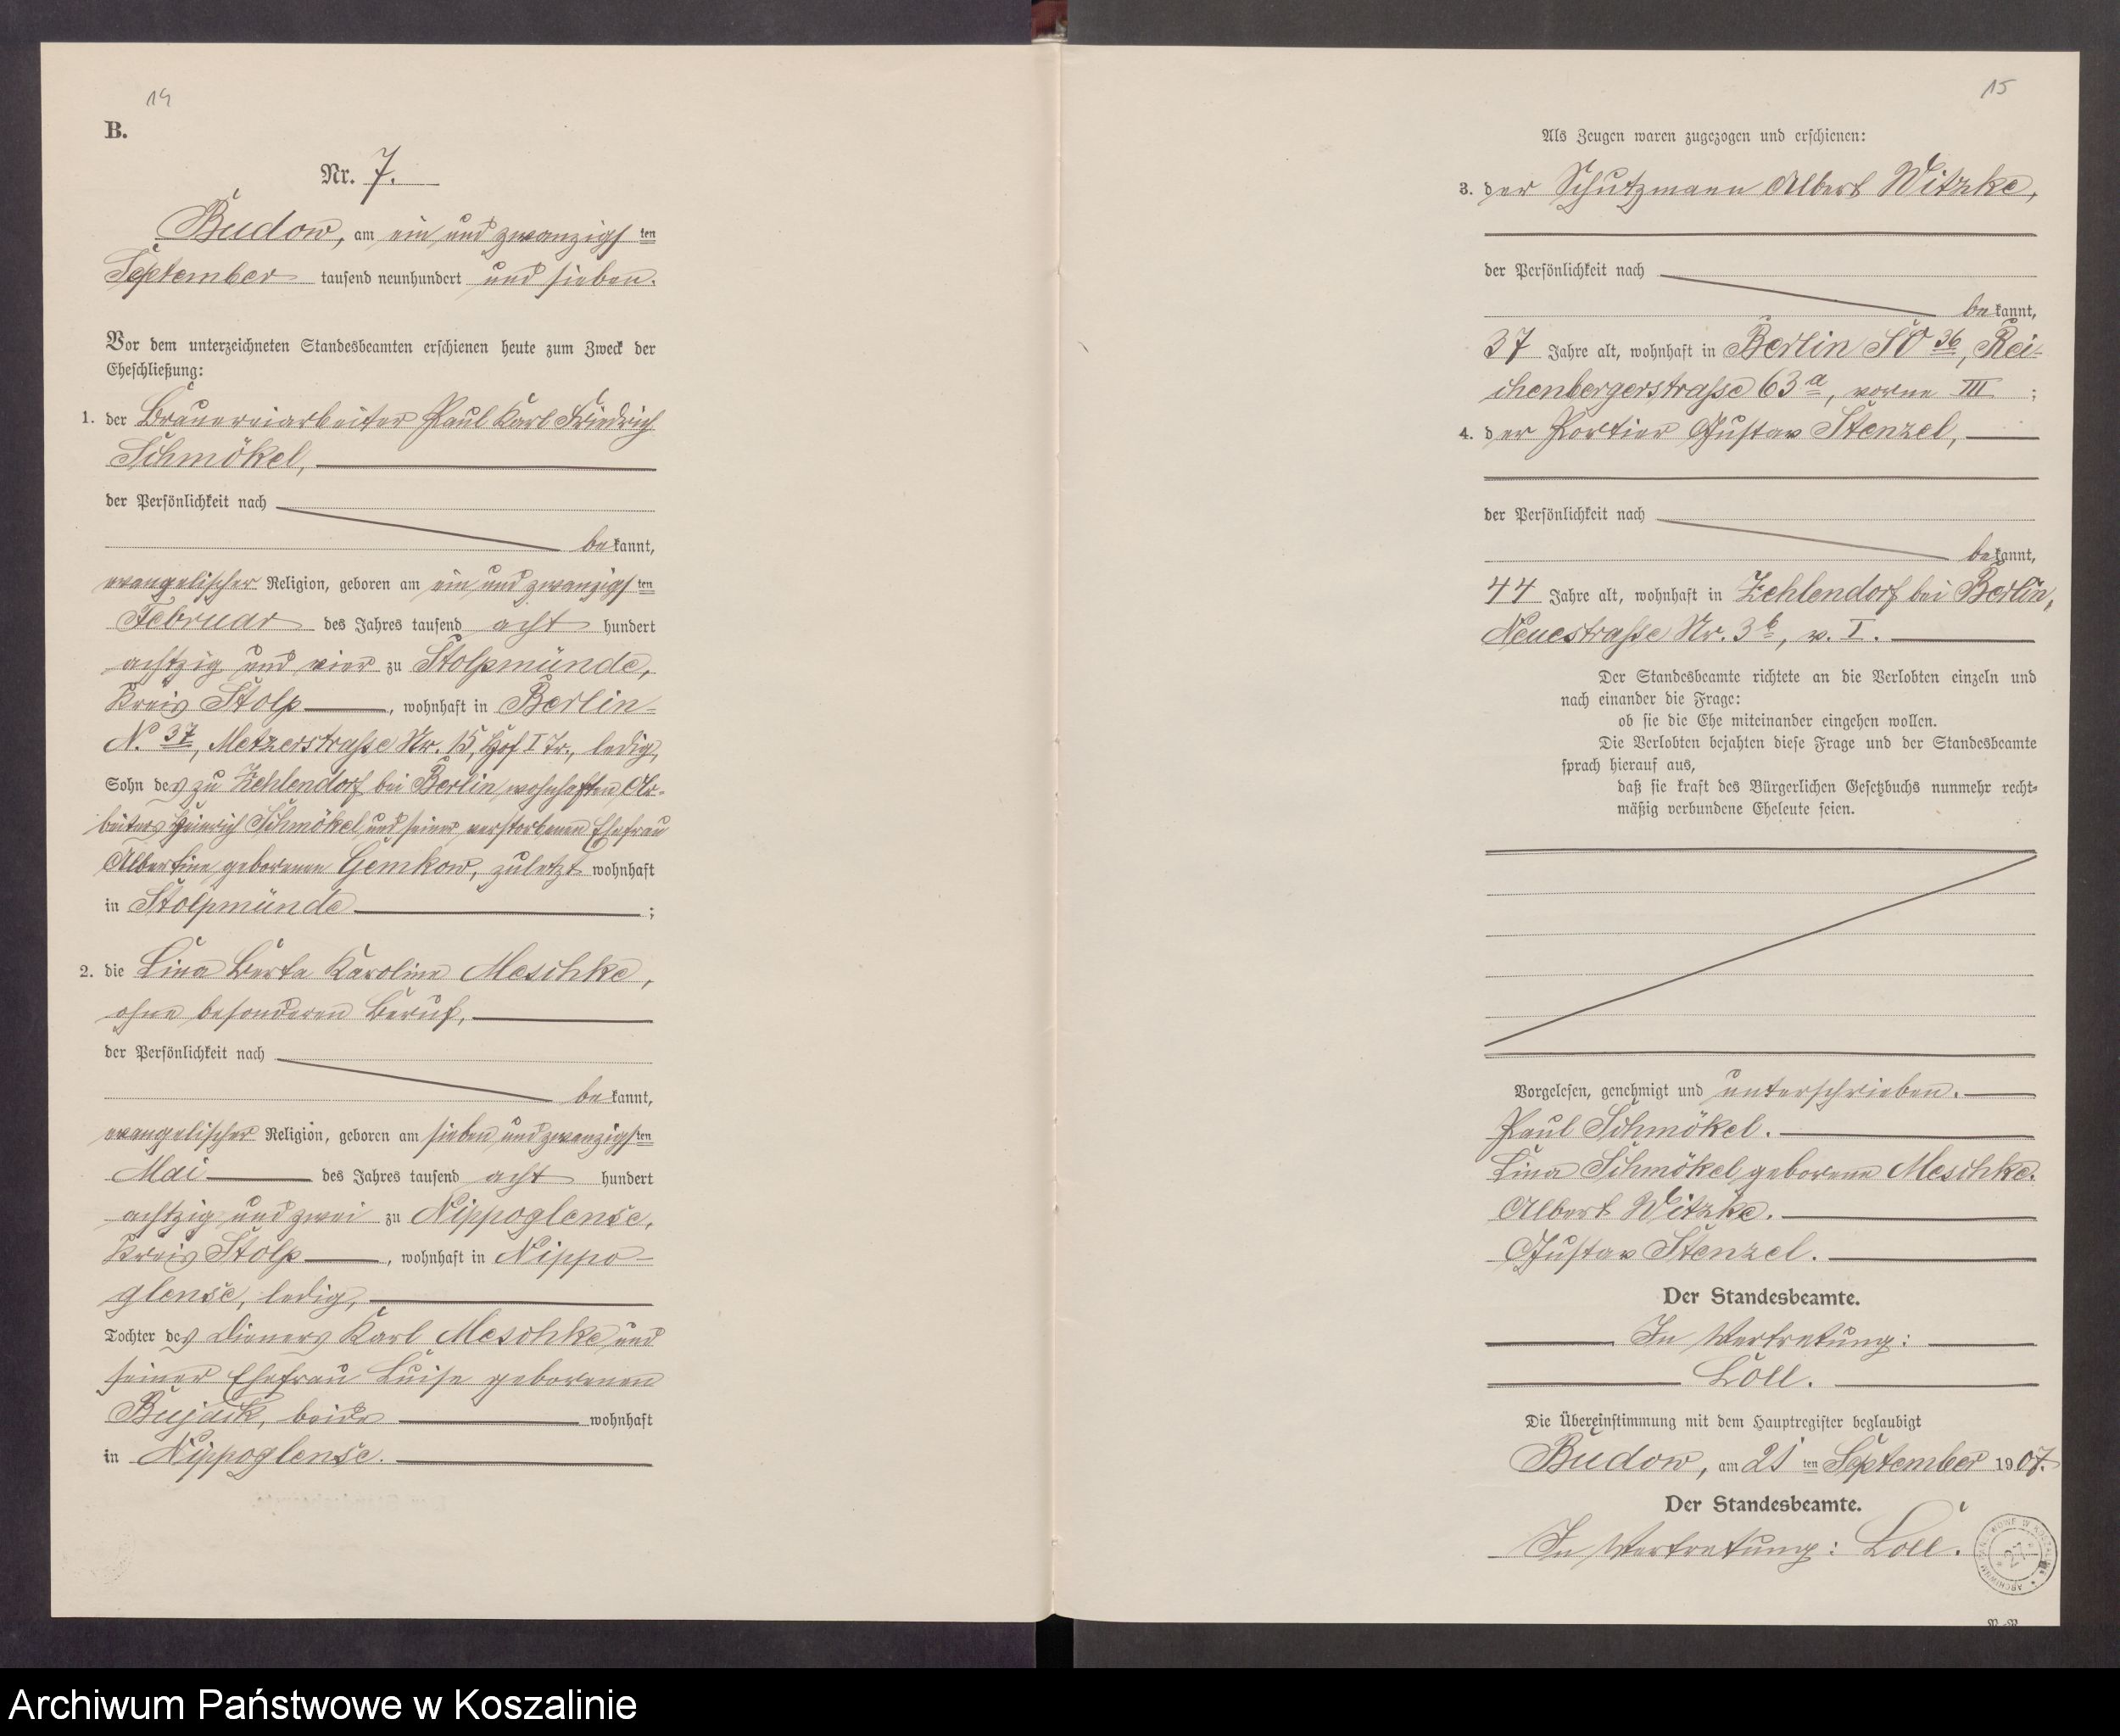 14
B.
Nr. 7.
Budow, am ein und zwanzigsten
September tausend neunhundert und sieben.
Vor dem unterzeichneten Standesbeamten erschienen heute zum Zweck der
Eheschließung:
1. der Brauereiarbeiter Paul Karl Friedrich
Schmökel,
der Persönlichkeit nach
bekannt,
evangelischer Religion, geboren am ein und zwanzigsten
Februar des Jahres tausend acht hundert
achtzig und vier zu Stolpmünde,
Kreis Stolp, wohnhaft in Berlin-
N. 37, Metzerstraße Nr. 15, Hof I Tr., ledig,
Sohn des zu Zehlendorf bei Berlin wohnhaften Ar-
beiters Heinrich Schmökel und seiner verstorbenen Ehefrau
Albertine geborenen Gemkow, zuletzt wohnhaft
in Stolpmünde ;
2. die Lina Berta Karoline Meschke,
ohne besonderen Beruf,
der Persönlichkeit nach
bekannt,
evangelischer Religion, geboren am sieben und zwanzigsten
Mai des Jahres tausend acht hundert
achtzig und zwei zu Nippoglense,
Kreis Stolp, wohnhaft in Nippo-
glense, ledig,
Tochter des Dieners Karl Meschke und
seiner Ehefrau Luise geborenen
Bujack, beide wohnhaft
in Nippoglense.
15
Als Zeugen waren zugezogen und erschienen:
3. der Schutzmann Albert Witzke,
der Persönlichkeit nach
bekannt,
37 Jahre alt, wohnhaft in Berlin SO 36, Rei-
chenbergerstraße 63a, vorne III ;
4. der Portier Gustav Stenzel,
der Persönlichkeit nach
bekannt,
44 Jahre alt, wohnhaft in Zehlendorf bei Berlin,
Neuestraße Nr. 3b, v. I.
Der Standesbeamte richtete an die Verlobten einzeln und
nach einander die Frage:
ob sie die Ehe miteinander eingehen wollen.
Die Verlobten bejahten diese Frage und der Standesbeamte
sprach hierauf aus,
daß sie kraft des Bürgerlichen Gesetzbuchs nunmehr recht-
mäßig verbundene Eheleute seien.
Vorgelesen, genehmigt und unterschrieben.
Paul Schmökel.
Lina Schmökel geborene Meschke.
Albert Witzke.
Gustav Stenzel.
Der Standesbeamte.
In Vertretung:
Loll.
Die Übereinstimmung mit dem Hauptregister beglaubigt
Budow, am 21 ten September 1907.
Der Standesbeamte.
In Vertretung: Loll.
Archiwum Państwowe w Koszalinie